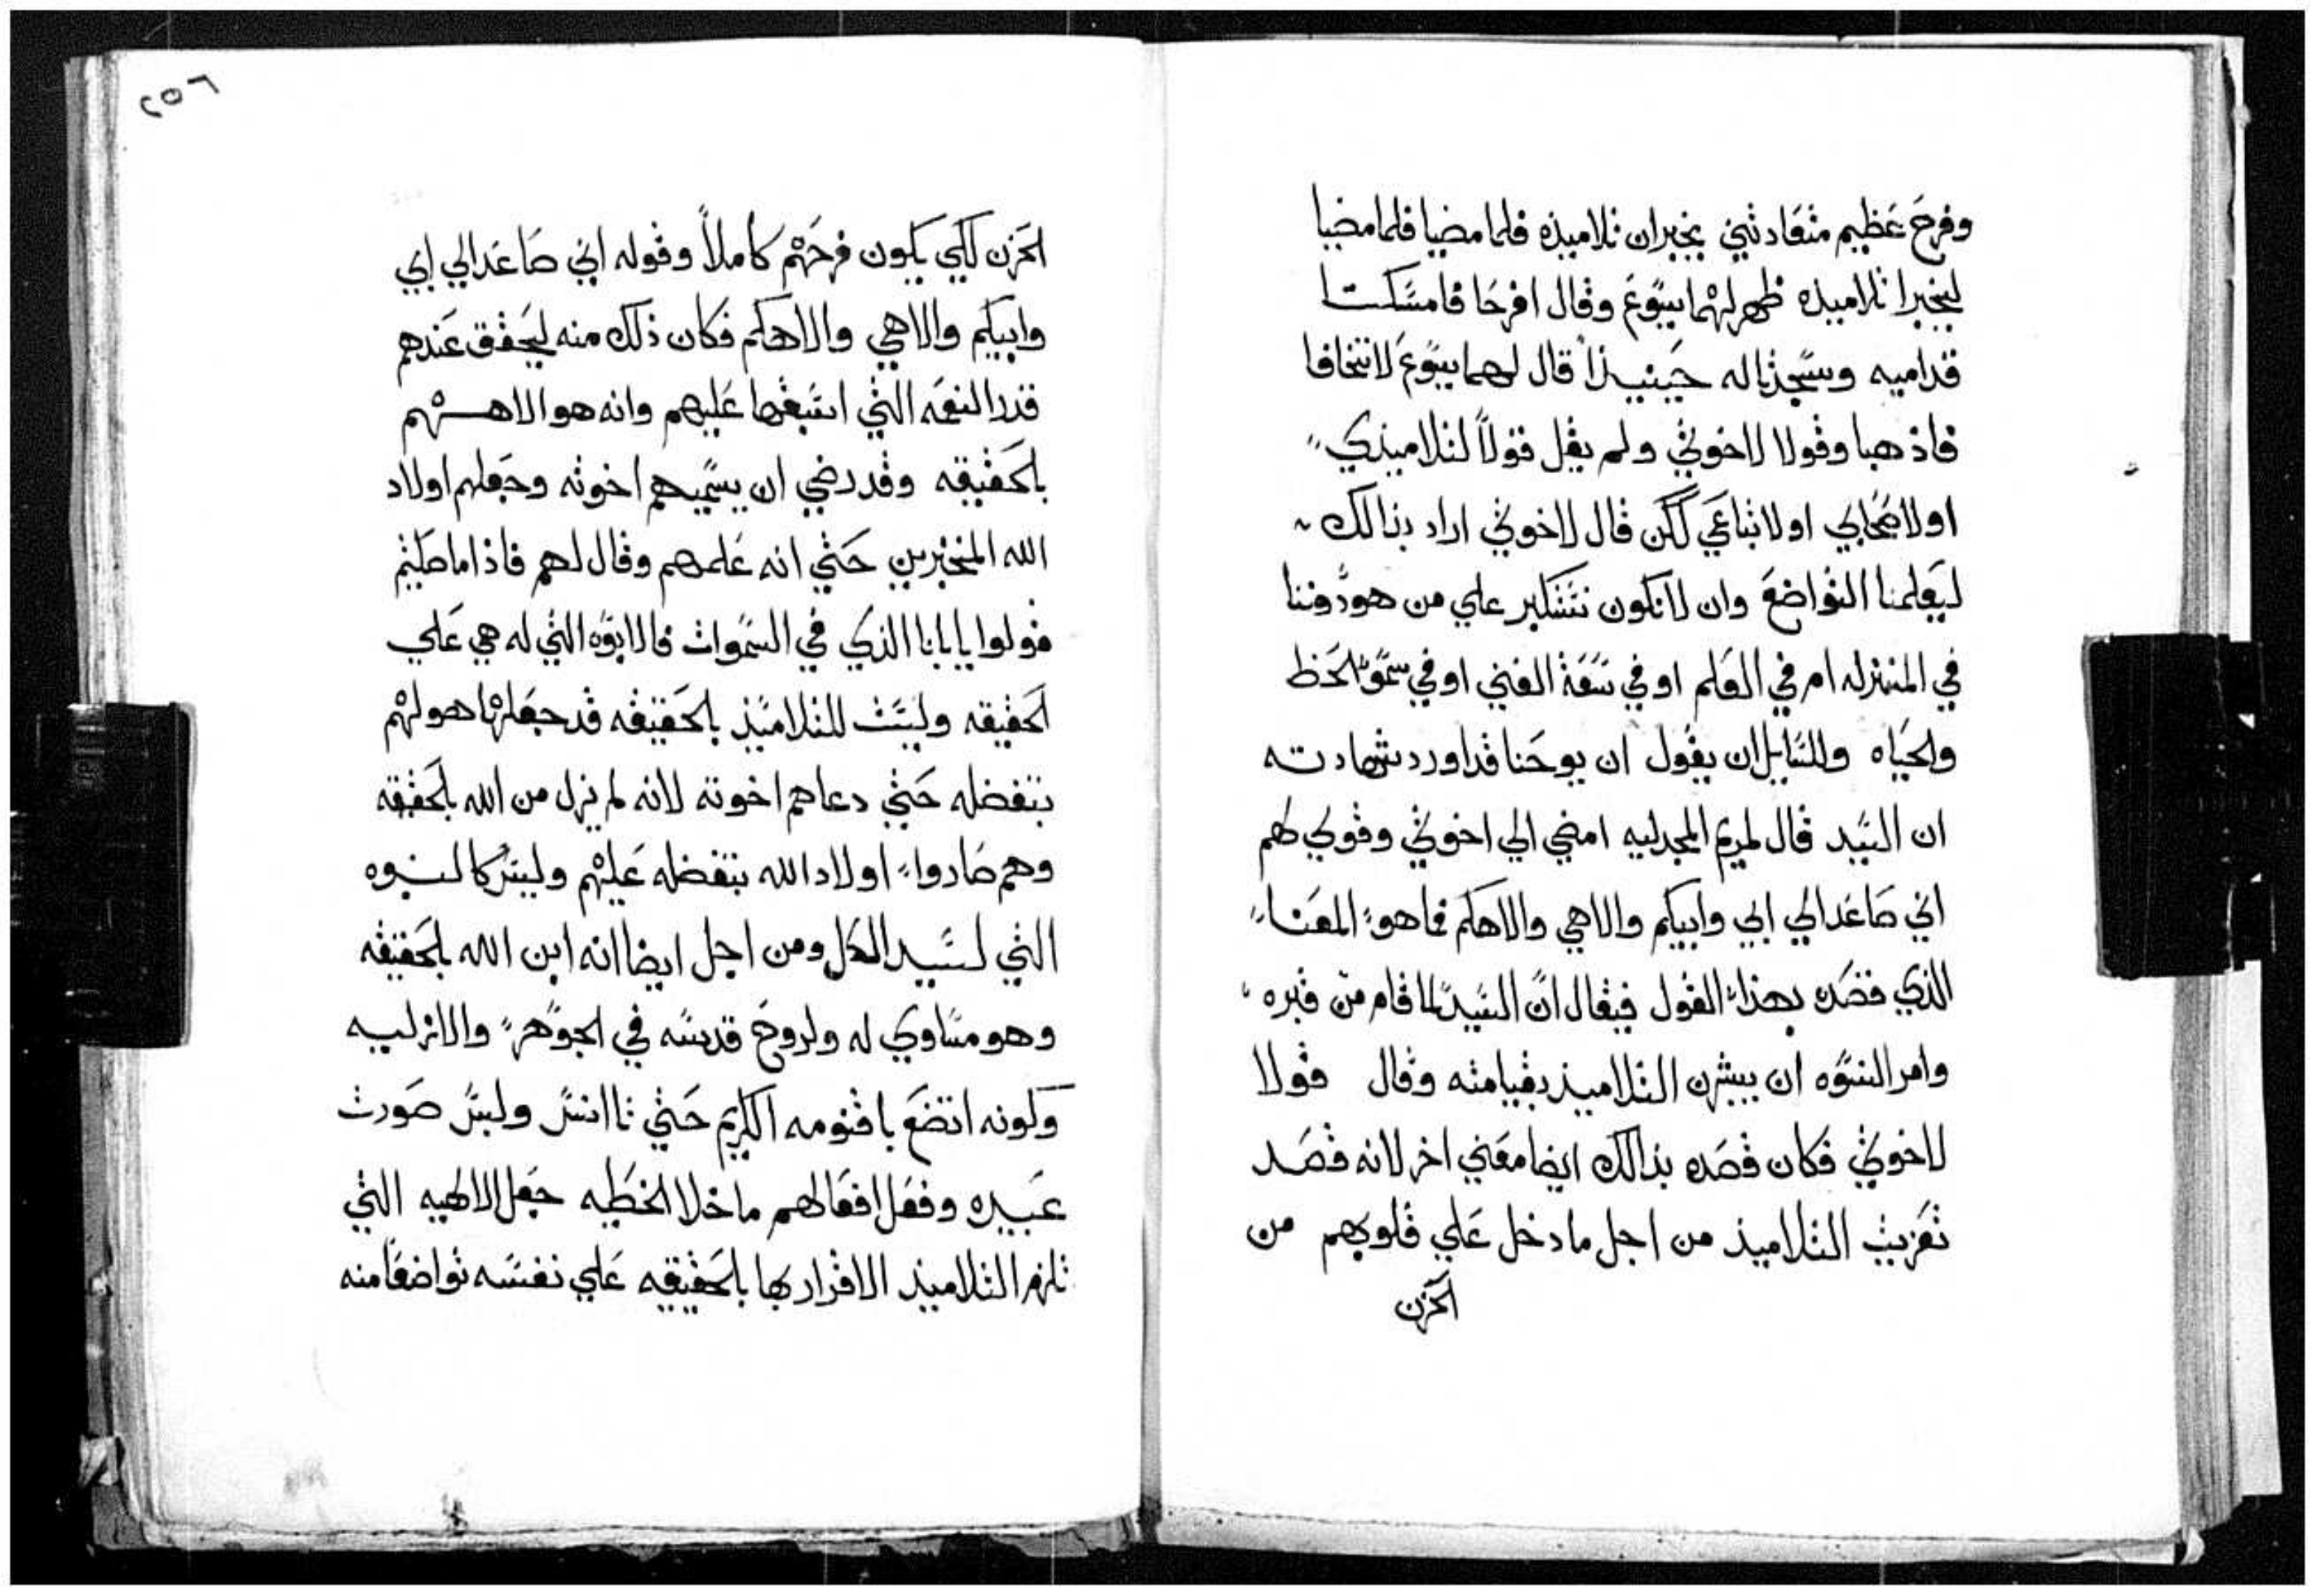 وفرح عظيم متعادتين يخبران تلاميذه فلما مضيا فلما مضيا
ليخبرا تلاميذه ظهر لهما يسوع وقال افرحا فامسكتا
قداميه وسجدتا له حينيذاً قال لهما يسوع لا تخافا
فاذهبا وقولا لاخوتي ولم يقل قولاً لتلاميذي
او لاصحابي او لاتباعي لكن قال لاخوتي اراد بذالك
ليعلمنا التواضع وان لا نكون نتكبر علي من هو دوننا
في المنزله ام في العلم او في سعة الغني او في سمو الحظ
والحياه وللسايل ان يقول ان يوحنا قد اورد شهادته
ان السيد قال لمريم المجدليه امضي الي اخوتي وقولي لهم
اني صاعد الي ابي وابيكم والاهي والاهكم فما هو المعنا
الذي قصده بهذا القول فيقال ان السيد لما قام من قبره
وامر النسوه ان يبشرن التلاميذ بقيامته وقال قولا
لاخوتي فكان قصده بذالك ايضا معني اخر لانه قصد
تعزيت التلاميذ من اجل ما دخل علي قلوبهم من
الحزن
٢٥٦
الحزن لكي يكون فرحهم كاملاً وقوله اني صاعد الي ابي
وابيكم والاهي والاهكم فكان ذلك منه ليحقق عندهم
قدر النعمه التي اسبغها عليهم وانه هو الاههم
بالحقيقه وقد رضي ان يسميهم اخوته وجعلهم اولاد
الله المنتخبرين حتي انه علمهم وقال لهم فاذا ما صليتم
فولوا يا ابانا الذي في السموات فالابوه التي له هي علي
الحقيقه وليست للتلاميذ بالحقيقه قد جعلها هو لهم
بتفضله حتي دعاهم اخوته لانه لم يزل من الله بالحقيقه
وهم صاروا اولاد الله بتفضله عليهم وليس كالبنوه
التي لسيد الكل ومن اجل ايضا انه ابن الله بالحقيقه
وهو مساوي له ولروح قدسه في الجوهر والازليه
وكونه اتضع باقنومه الكريم حتي تاانس ولبس صورت
عبيده وفعل افعالهم ما خلا الخطيه جعل الالهيه التي
تلزم التلاميذ الاقرار بها بالحقيقه علي نفسه تواضعاً منه